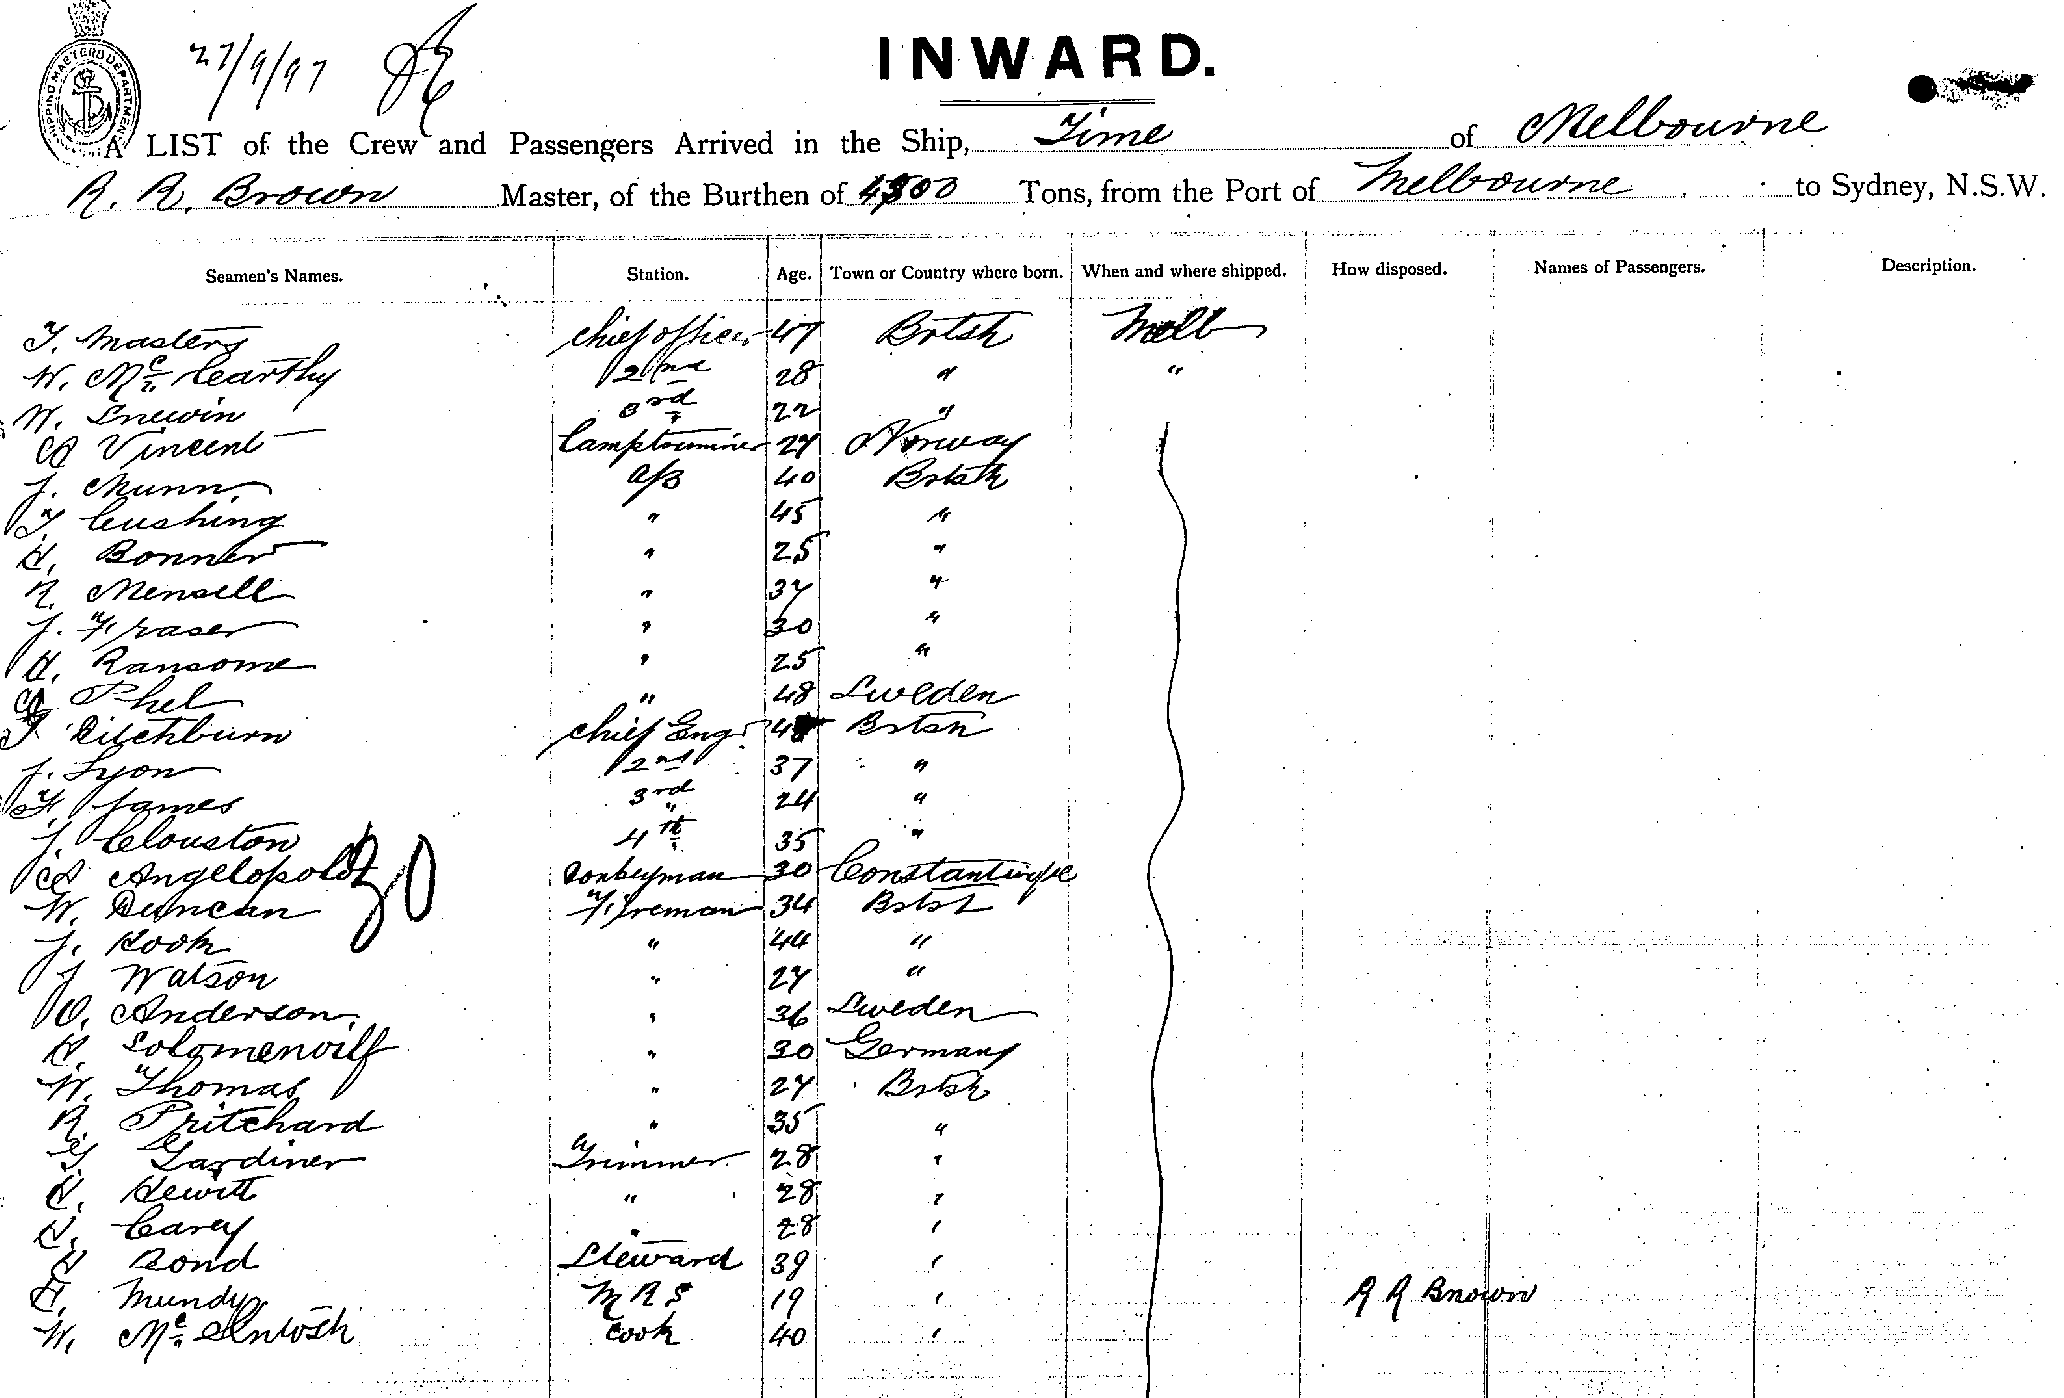 SHIPPING MASTER'S DEPARTMENT
27/9/97
INWARD.
A LIST of the Crew and Passengers Arrived in the Ship, Time of Melbourne
R. R. Brown Master, of the Burthen of Tons, from the Port of Melbourne to Sydney, N.S.W.
Seamen's Names. Station. Age. Town or Country where born. When and where shipped. How disposed. Names of Passengers. Description.
T. Masters chief officer 47 Brtsh Melb
W. Mc Carthy 2nd " 28 " "
W. Snewin 3rd " 22 "
Vincent Lamptrimmer 27 Norway
J. Munn A/B 40 Brtsh
T. Cushing " 45 "
H. Bonner " 25 "
R. Mensell " 37 "
J. Fraser " 30 "
H. Ransome " 25 "
Phel " 48 Sweden
Ritchburn chief Engr Brtsh
J. Lyon 2nd " 37 "
F. James 3rd " 24 "
J. Clouston 4th " 35 "
Donkeyman 30 Constantinple
W. Duncan Fireman 34 Brtsh
J. Rook " 44 "
J Watson " 27 "
O. Anderson " 36 Sweden
H. Solomenoilf " 30 Germany
W. Thomas " 27 Brtsh
R. Pritchard " 35 "
G. Gardiner Trimmer 28 "
H. Hewitt " 28 "
H. Carey " 28 "
H Bond Steward 39 "
H. Mundy M R S 19 " R R Brown
W. Mc Intosh Cook 40 "